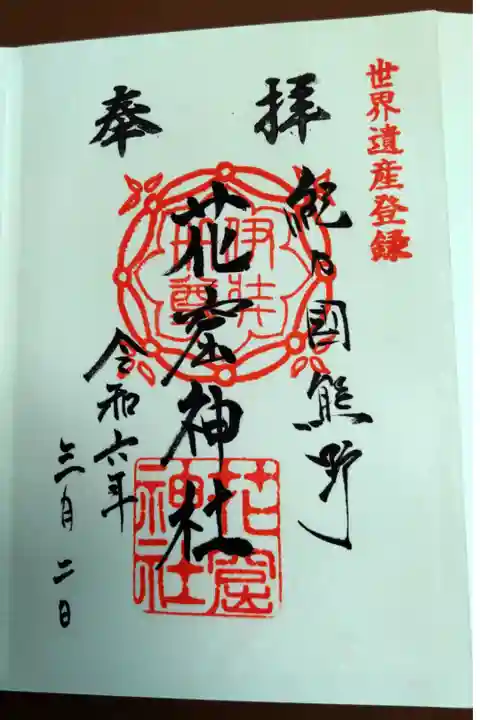 世界遺産登録
奉拝
紀乃國熊野
花窟神社
令和六年
三月二日
伊弉冊尊
花窟神社